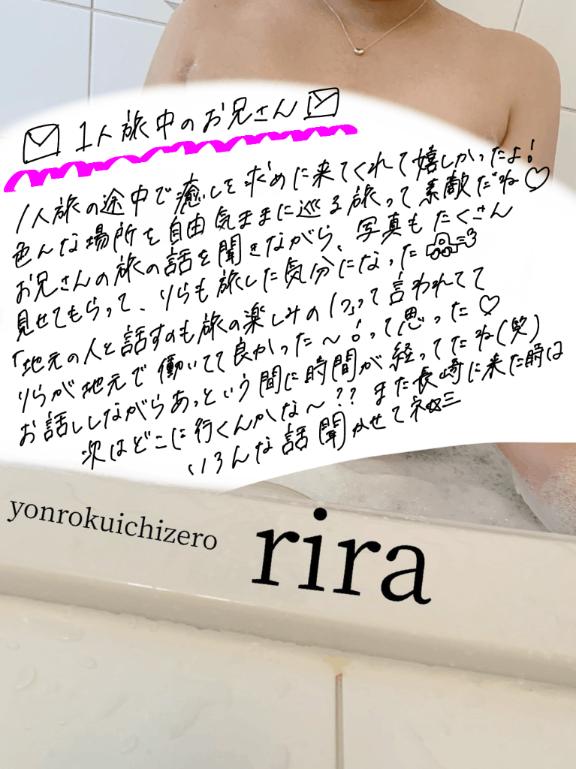 1人旅中のお兄さん
1人旅の途中で癒しを求めに来てくれて嬉しかったよ!
色んな場所を自由気ままに巡る旅って素敵だね♡
お兄さんの旅の話を聞きながら、写真もたくさん
見せてもらって、りらも旅した気分になった
「地元の人と話すのも旅の楽しみの1つ」って言われてて
りらが地元で働いてて良かった〜!って思った♡
お話ししながらあっという間に時間が経ってたね(笑)
次はどこに行くんかな〜?? また長崎に来た時は
いろんな話聞かせてネ
yonrokuichizero
rira